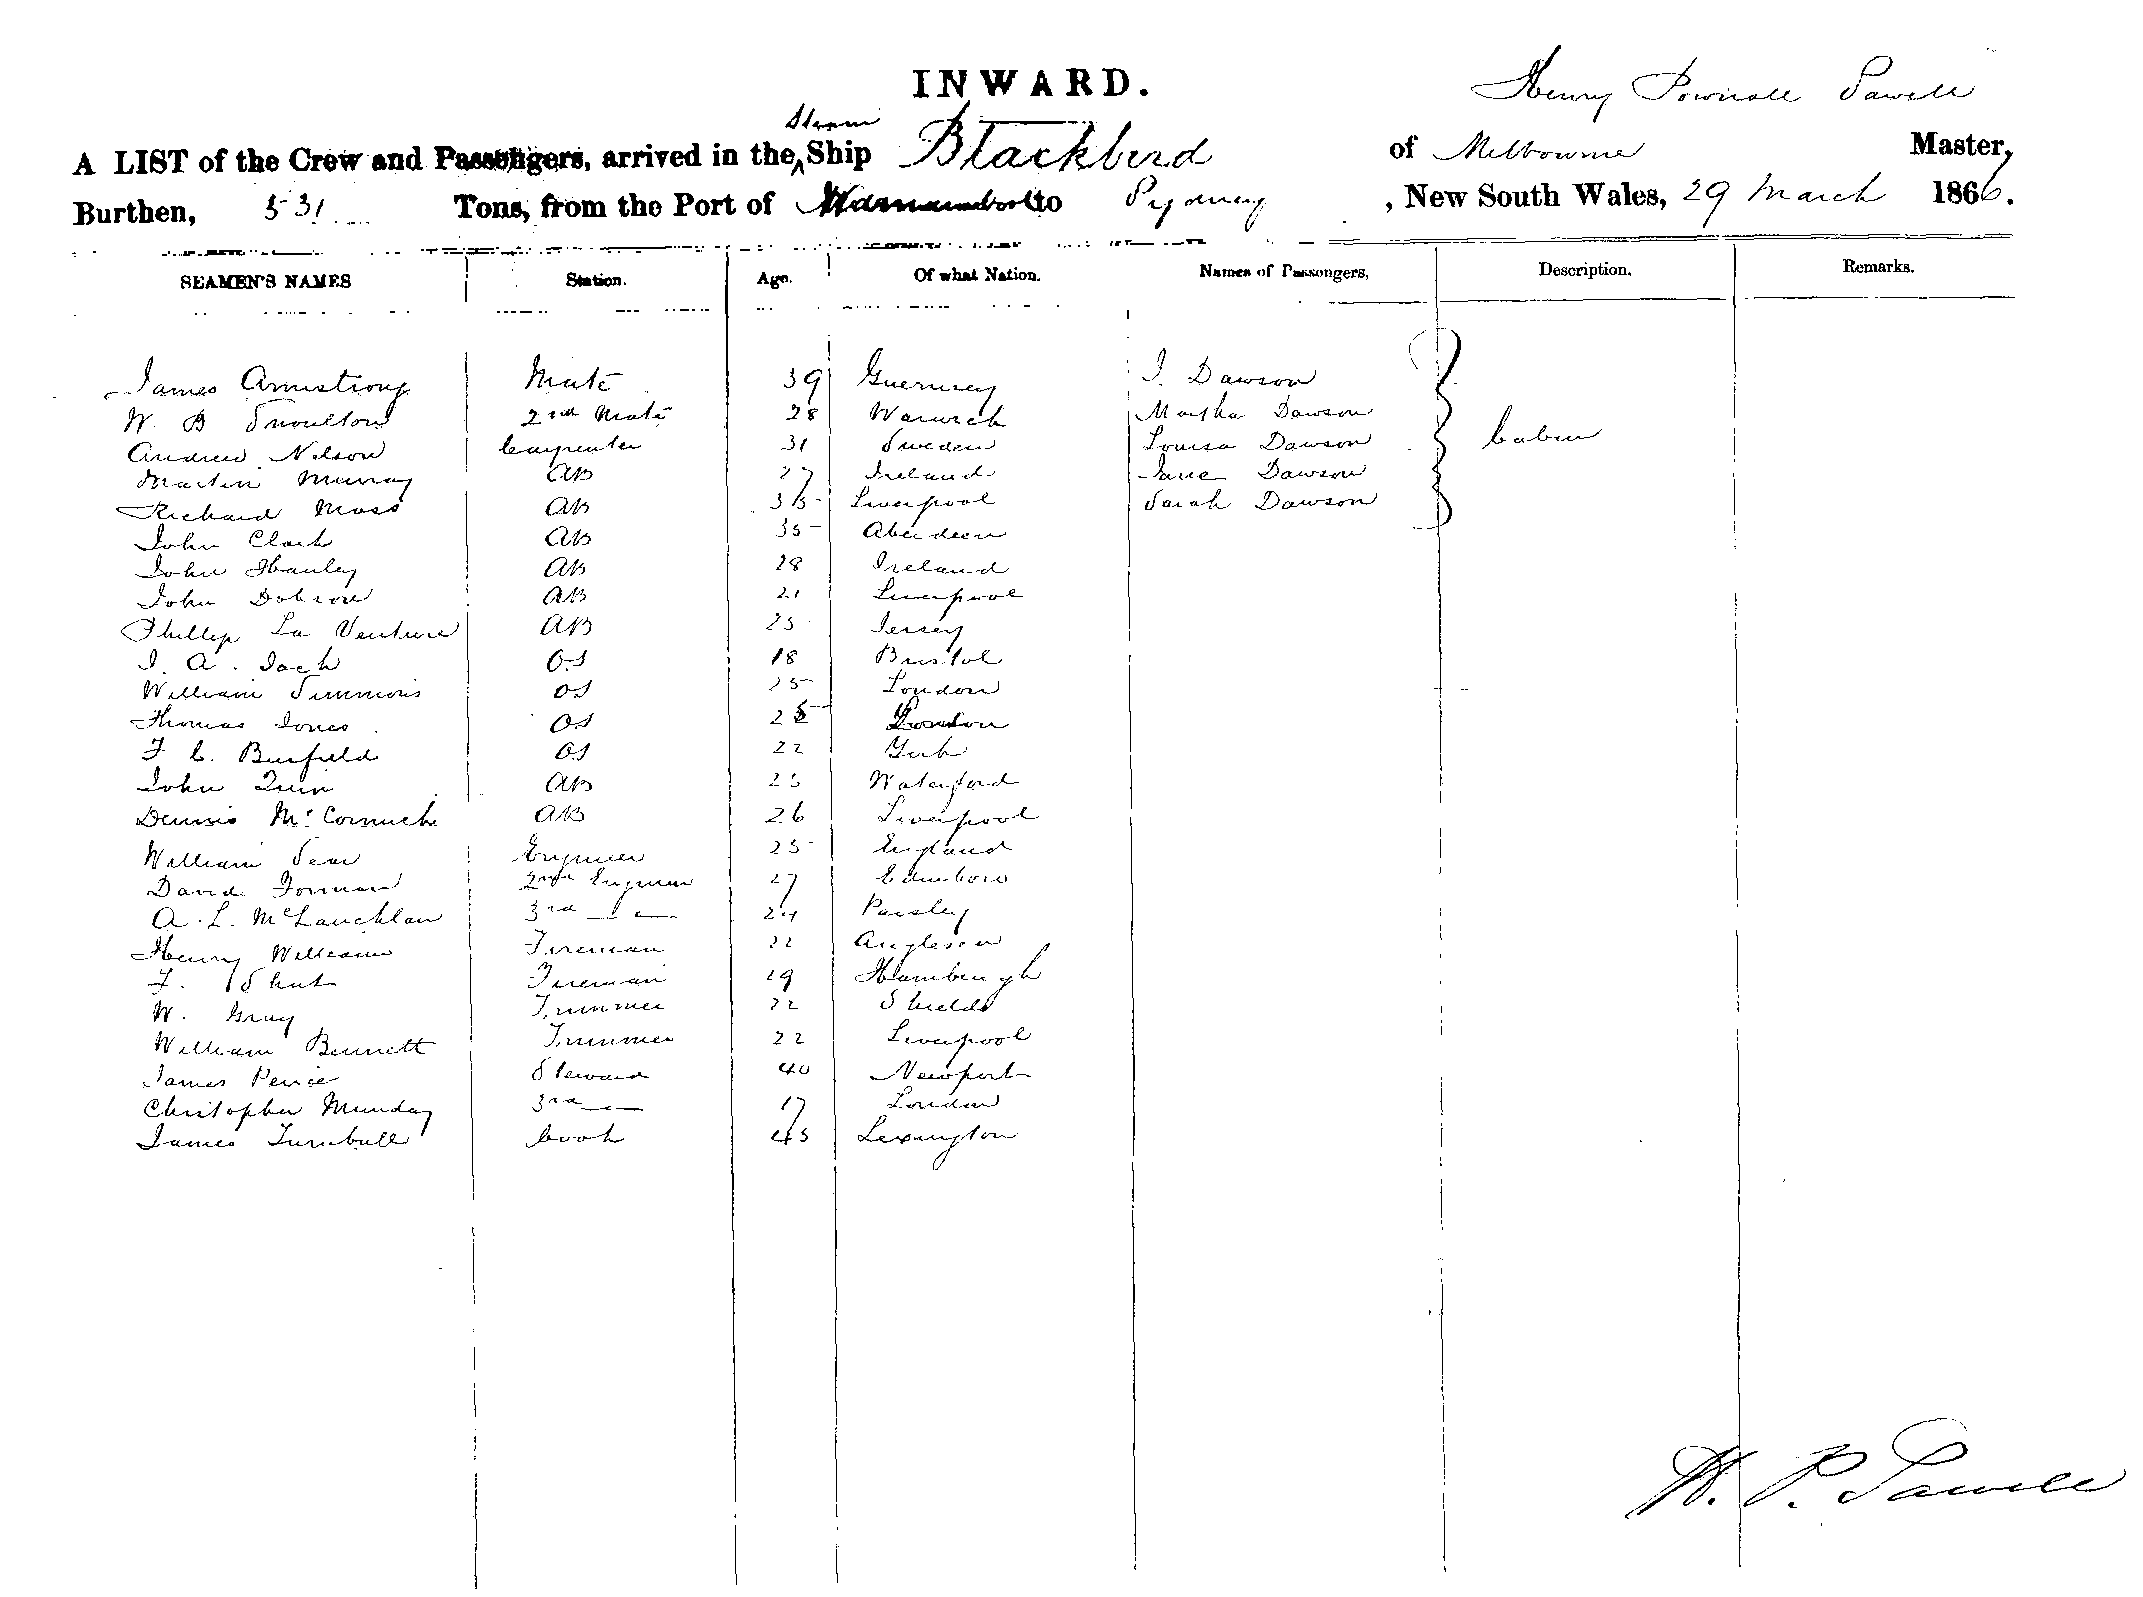 INWARD.
Henry Pownall Sawell
Steam
A LIST of the Crew and Passengers, arrived in the Ship Blackbird of Melbourne Master,
Burthen, 531 Tons, from the Port of Warrnambool to Sydney, New South Wales, 29 March 1866.
SEAMEN'S NAMES Station. Age. Of what Nation. Names of Passengers, Description. Remarks.
James Armstrong Mate 39 Guernsey I. Dawson
W. B Smoulton 2nd Mate 28 Warwick Martha Dawson
Andrew Nilson Carpenter 31 Sweden Louisa Dawson Cabin
Martin Murray AB 27 Ireland Jane Dawson
Richard Moss AB 35 Liverpool Sarah Dawson
John Clark AB 35 Aberdeen
John Hanley AB 28 Ireland
John Dobson AB 21 Liverpool
Phillip La Venture AB 25 Jersey
J. A. Jack OS 18 Bristol
William Simmons OS 25 London
Thomas Jones OS 25 London
F C. Burfield OS 22 York
John Quin AB 25 Waterford
Dennis McCormick AB 26 Liverpool
William Engineer 25 England
David Forman 2nd Engineer 27 Edinboro
A. L. McLauchlan 3rd 24 Paisley
Henry William Fireman 22 Anglesea
F. Shut Fireman 29 Hamburgh
W. Gray Trimmer 22 Shields
William Bennett Trimmer 22 Liverpool
James Penice Steward 40 Newport
Christopher Munday 3rd 17 London
James Turnbull Cook 45 Lexington
H. P. Sawell